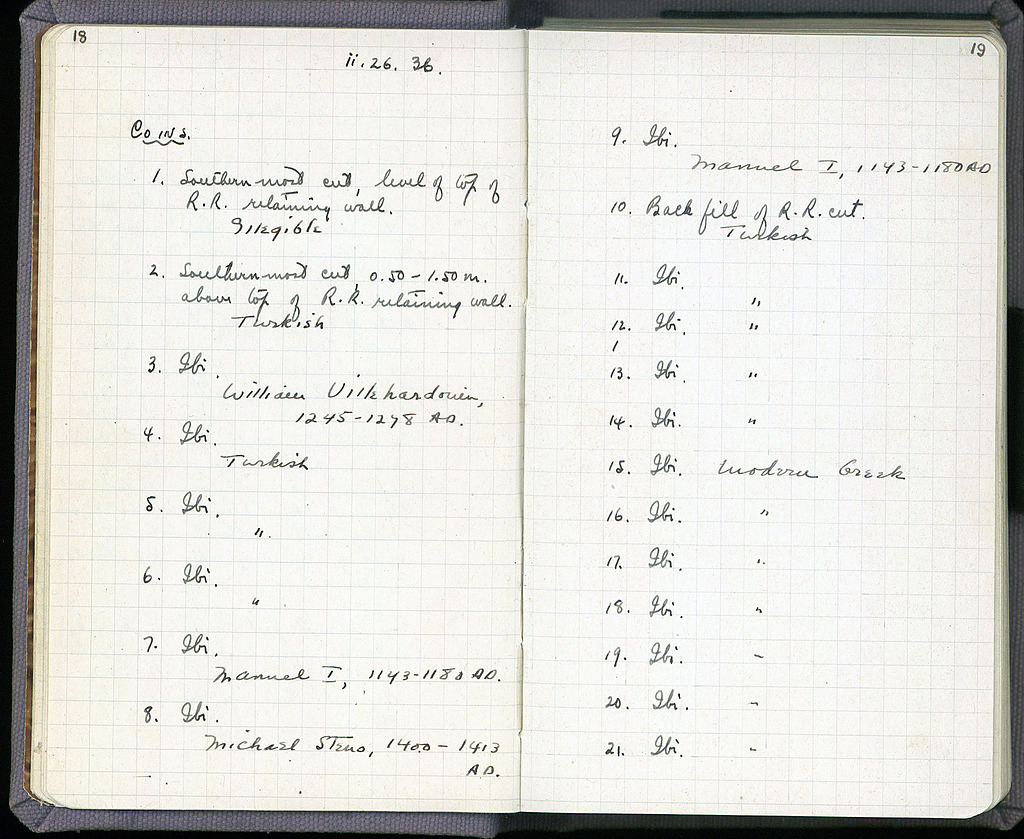 18
ii. 26. 36.
Coins.
1. Southern-most cut, level of top of
R.R. retaining wall.
Illegible
2. Southern-most cut, 0.50 - 1.50 m.
above top of R.R. retaining wall.
Turkish
3. Ibi.
William Villehardouin,
1245-1278 AD.
4. Ibi.
Turkish
5. Ibi.
".
6. Ibi.
"
7. Ibi.
Manuel I, 1143-1180 AD.
8. Ibi.
Michael Steno, 1400 - 1413
AD.
19
9. Ibi.
Manuel I, 1143-1180 AD
10. Back fill of R.R. cut.
Turkish
11. Ibi.
"
12. Ibi. "
13. Ibi. "
14. Ibi. "
15. Ibi. Modern Greek
16. Ibi. "
17. Ibi. "
18. Ibi. "
19. Ibi. "
20. Ibi. "
21. Ibi. "